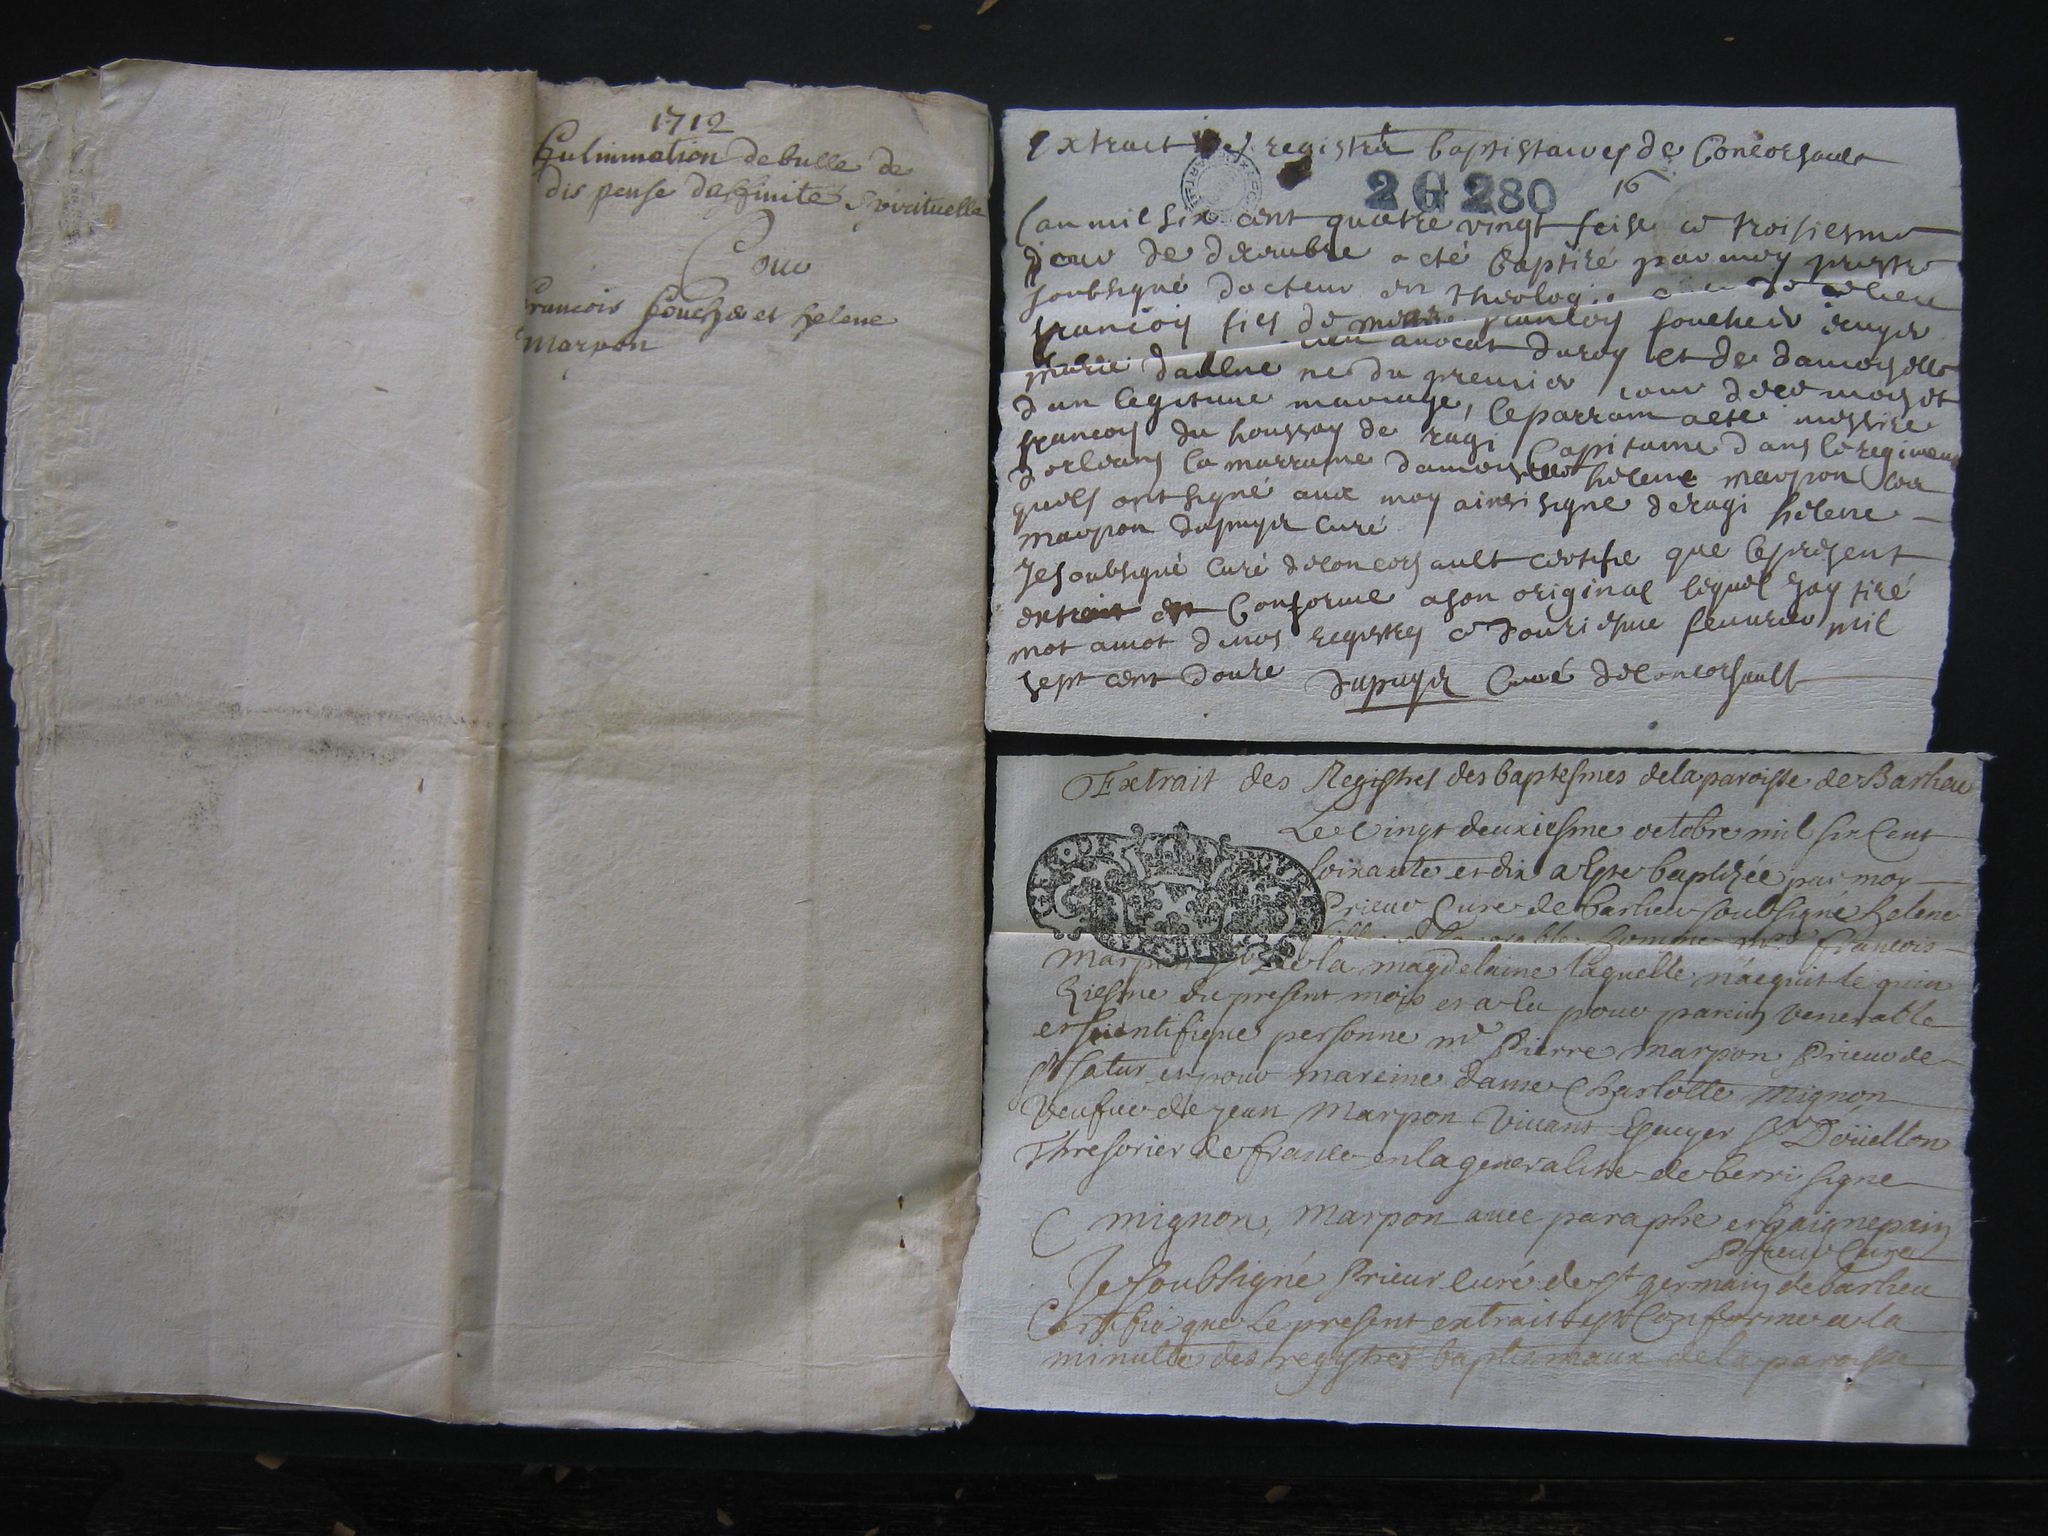 1712
Fulmination de bulle de
dispense dafinité Spirituelle
Pour
francois fouchér et helene
Marpon
Extraict des registre baptistaires de Concorsault
2 G 280
16
Lan mil six cent quatre vingt seise ce troisiesme
jour de decembre a eté baptizé par moy prestre
soubsigné docteur en theologie
françois fils de françois foucheir ecuyer
avocat du roy et de damoiselle
marie né du premier jour dece mois et
dun legitime mariage, le parrain a eté messire
françois du houssay de ragi Capitaine dans le regiment
dorleans la marraine damoiselle helene marpon
quels ont signé avec moy ainsi signé de ragi helene
marpon dupuyx curé
Je soubsigné Curé de concorsault certifie que le present
extrait est Conforme a son original lequel jay tiré
mot amot de nos registres ce douziesme feuvrier mil
sept cent douze dupuyx Curé de Concorsault
Extrait des Registres des baptesmes dela paroisse de Barlieu
Le Vingt deuxiesme octobre mil six Cent
soixante et dix a este baptizée par moy
Prieur Curé de barlieu soubsigné helene
fille honorable homme mre francois
Marpon Sr de la magdelaine laquelle náquit le quin
ziesme du present mois et a eu pour parein venerable
et scientifique personne mre Pierre Marpon Prieur de
St satur et pour mareine dame Charlotte Mignon
Veufue de jean Marpon Vivant Escuyer Sr Doüellon
Thresorier de france en la generalité de berri signe
C mignon, Marpon avec paraphe et gaignepain
Prieur Curé
Je soubsigné Prieur curé de St germain de barlieu
Certifie que le present extrait est Conforme a la
minutte des registres baptismaux dela paroisse